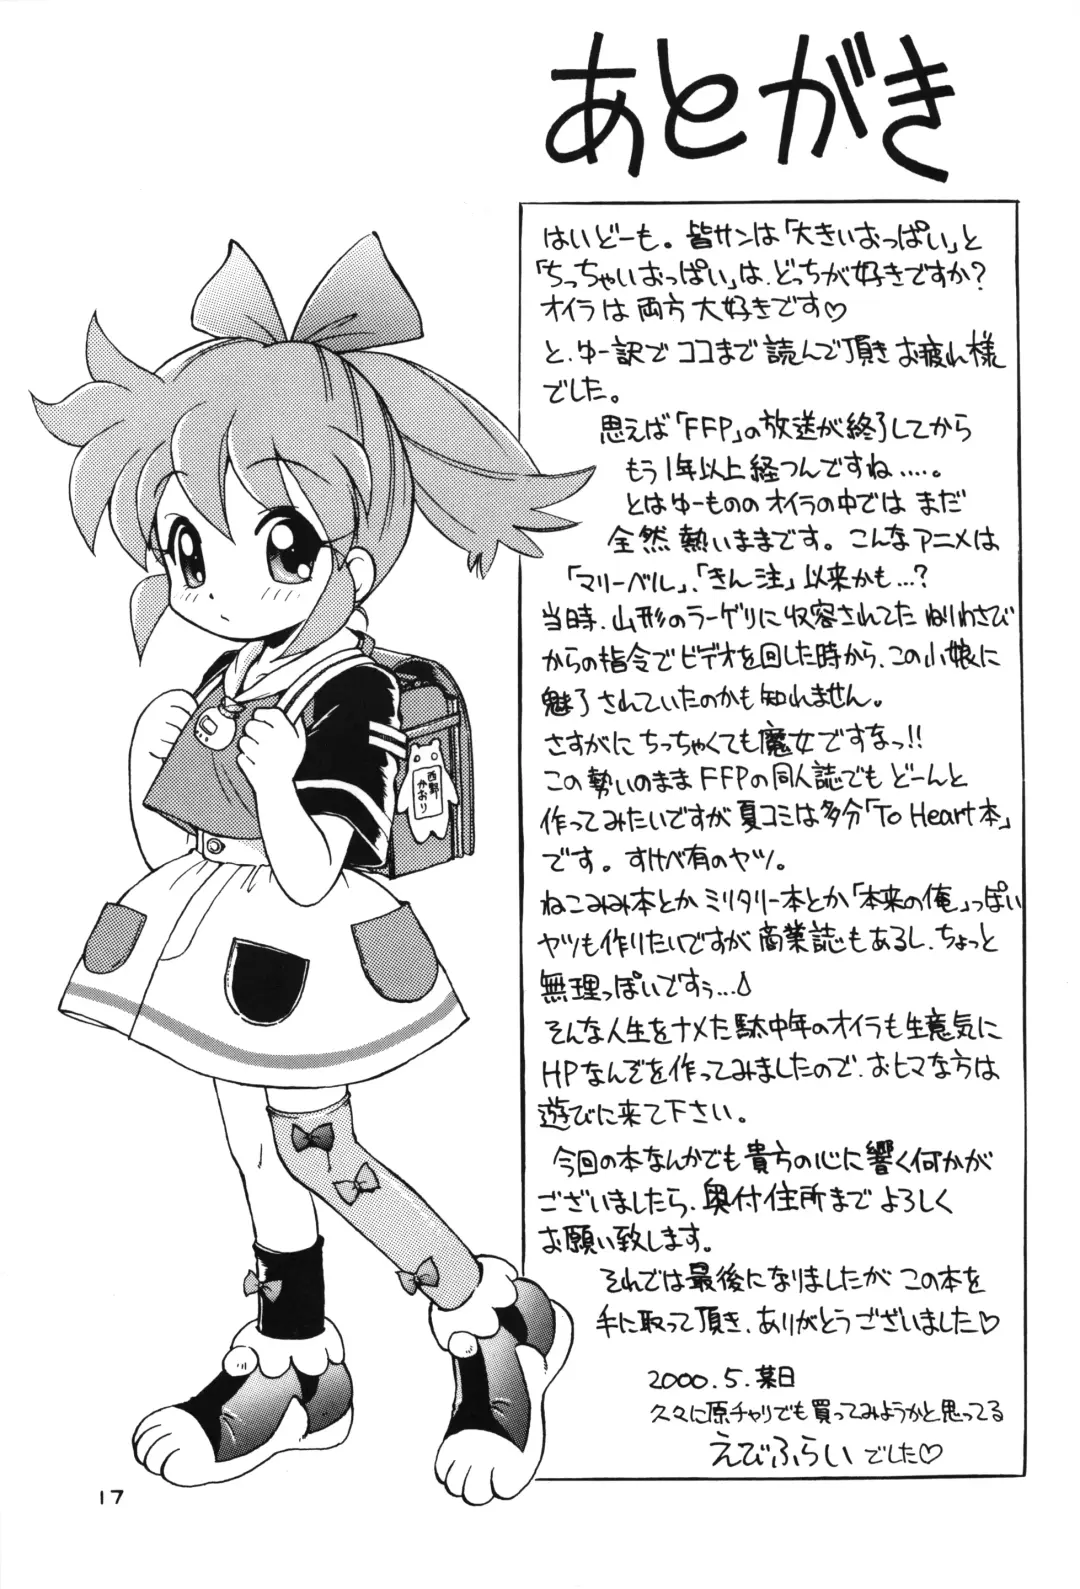 あとがき
はいどーも。皆サンは「大きいおっぱい」と
「ちっちゃいおっぱい」は、どっちが好きですか?
オイラは両方大好きです♡
と、ゆー訳でココまで読んで頂きお疲れ様
でした。
思えば「FFP」の放送が終了してから
もう1年以上経つんですね……。
とはゆーもののオイラの中ではまだ
全然熱いままです。こんなアニメは
「マリーベル」、「きん注」以来かも…?
当時、山形のラーゲリに収容されてたねりわさび
からの指令でビデオを回した時から、この小娘に
魅了されていたのかも知れません。
さすがにちっちゃくても魔女ですなっ!!
この勢いのままFFPの同人誌でもどーんと
作ってみたいですが夏コミは多分「To Heart本」
です。すけべ有のヤツ。
ねこみみ本とかミリタリー本とか「本来の俺」っぽい
ヤツも作りたいですが商業誌もあるし、ちょっと
無理っぽいですぅ…
そんな人生をナメた駄中年のオイラも生意気に
HPなんぞを作ってみましたので、おヒマな方は
遊びに来て下さい。
今回の本なんかでも貴方の心に響く何かが
ございましたら、奥付住所までよろしく
お願い致します。
それでは最後になりましたがこの本を
手に取って頂き、ありがとうございました♡
2000.5.某日
久々に原チャリでも買ってみようかと思ってる
えびふらいでした♡
西野
かおり
17